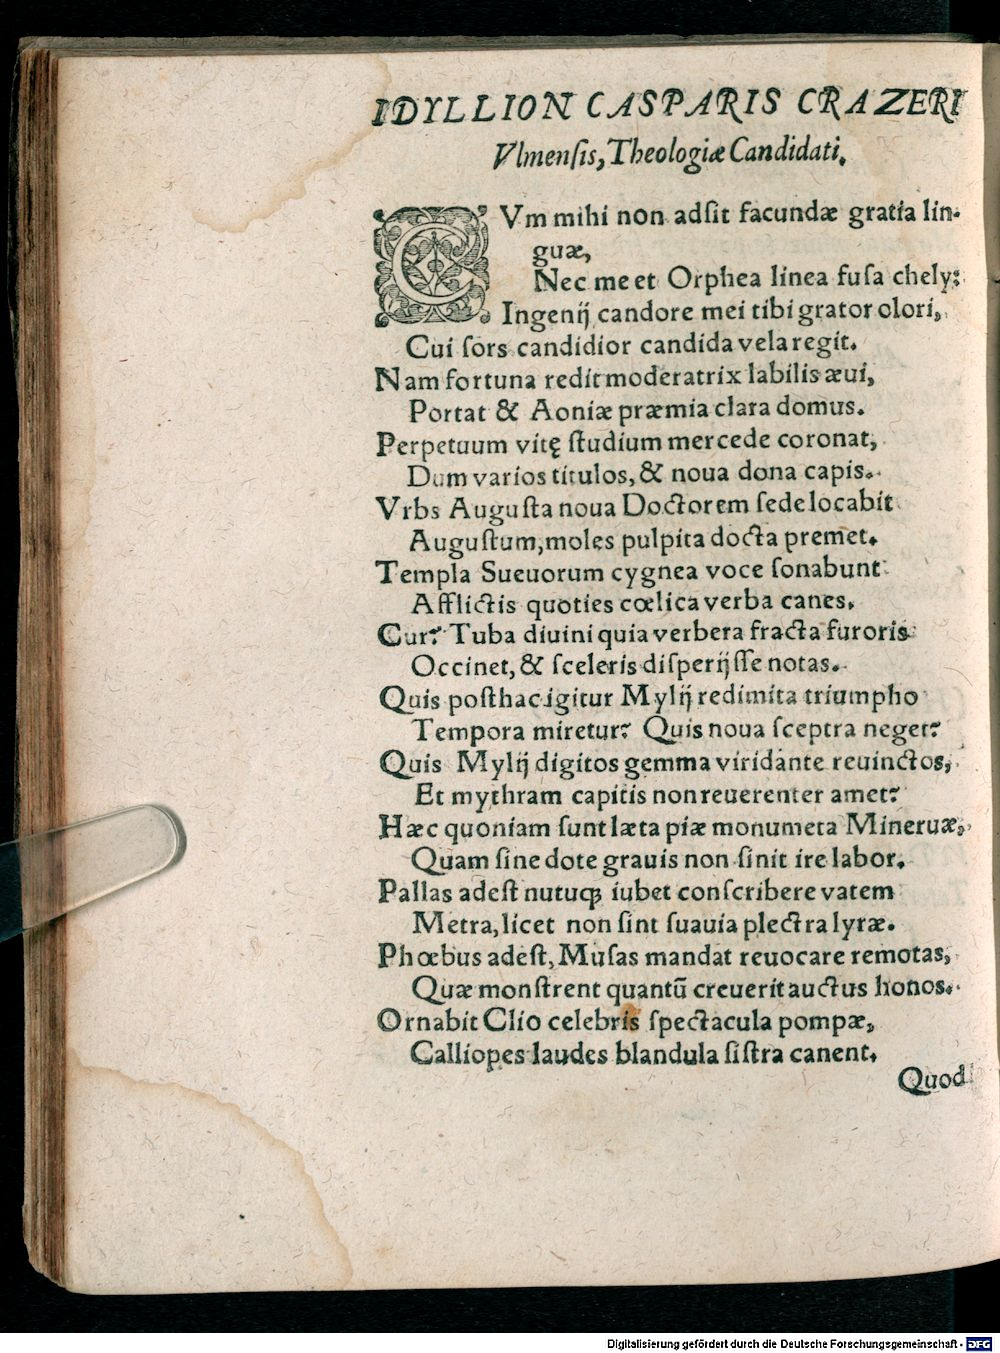 IDYLLION CASPARIS CRAZERI
Vlmenſis, Theologiæ Candidati.
CVm mihi non adſit facundæ gratia lin-
guæ,
Nec me et Orphea linea fuſa chely:
Ingenij candore mei tibi grator olori,
Cui ſors candidior candida vela regit.
Nam fortuna redit moderatrix labilis æui,
Portat & Aoniæ præmia clara domus.
Perpetuum vitę ſtudium mercede coronat,
Dum varios titulos, & noua dona capis.
Vrbs Auguſta noua Doctorem ſede locabit
Auguſtum, moles pulpita docta premet.
Templa Sueuorum cygnea voce ſonabunt
Afflictis quoties cœlica verba canes.
Cur? Tuba diuini quia verbera fracta furoris
Occinet, & ſceleris diſperijſſe notas.
Quis poſthac igitur Mylij redimita triumpho
Tempora miretur? Quis noua ſceptra neget?
Quis Mylij digitos gemma viridante reuinctos,
Et mythram capitis non reuerenter amet?
Hæc quoniam ſunt læta piæ monumeta Mineruæ,
Quam ſine dote grauis non ſinit ire labor.
Pallas adeſt nutuqꝫ iubet conſcribere vatem
Metra, licet non ſint ſuauia plectra lyræ.
Phœbus adeſt, Muſas mandat reuocare remotas,
Quæ monſtrent quantũ creuerit auctus honos.
Ornabit Clio celebris ſpectacula pompæ,
Calliopes laudes blandula ſiſtra canent.
Quod
Digitalisierung gefördert durch die Deutsche Forschungsgemeinschaft - DFG